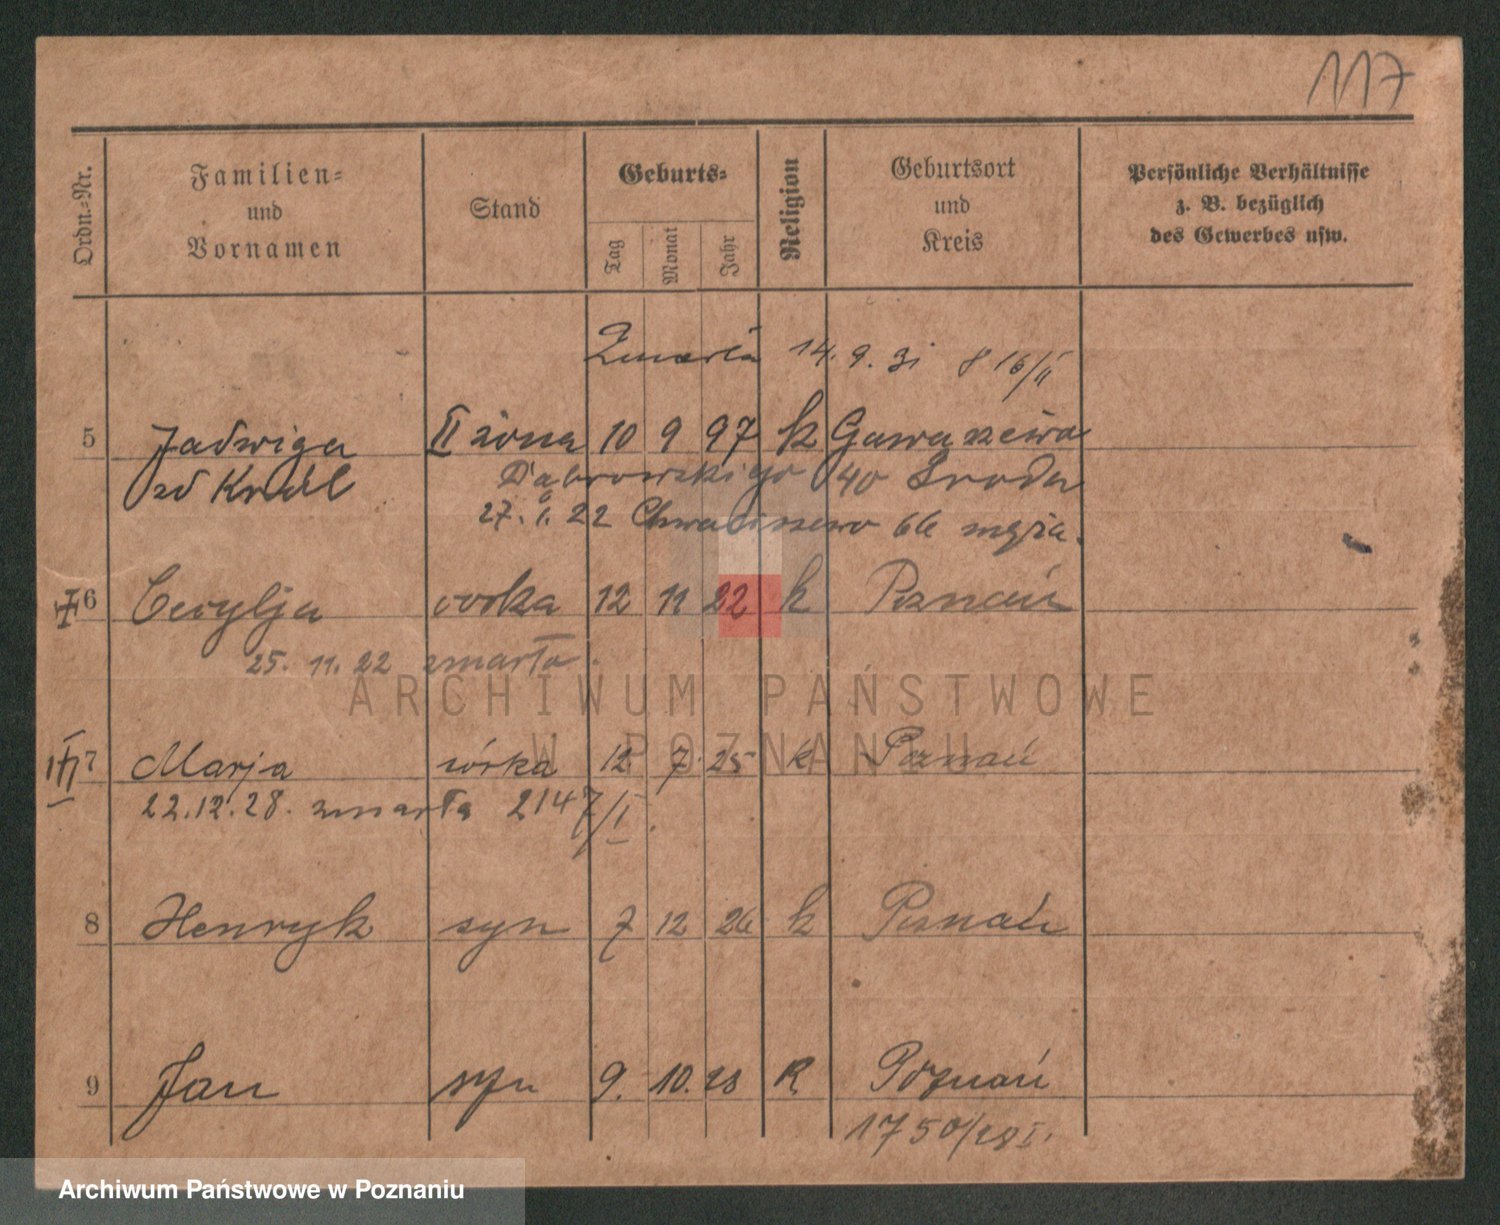 117
Ordn.-Nr.
Familien-
und
Vornamen
Stand
Geburts-
Tag
Monat
Jahr
Religion
Geburtsort
und
Kreis
Persönliche Verhältnisse
z. B. bezüglich
des Gewerbes usw.
Zmarła 14. 9. 31
5 Jadwiga II żona 10 9 97 k
zd Król Dąbrowskiego 40 Środa
27. 22 Chwaliszewo 66 męża.
6 Cecylja córka 12 11 22 k Poznań
25. 11. 22 zmarła.
ARCHIWUM PAŃSTWOWE
W POZNANIU
III 7 Marja córka 12 7. 25 k Poznań
22.12.28. zmarła 2147/I.
8 Henryk syn 7 12 26 k Poznań
9 Jan syn 9. 10. 28 R Poznań
1750/28 I.
Archiwum Państwowe w Poznaniu